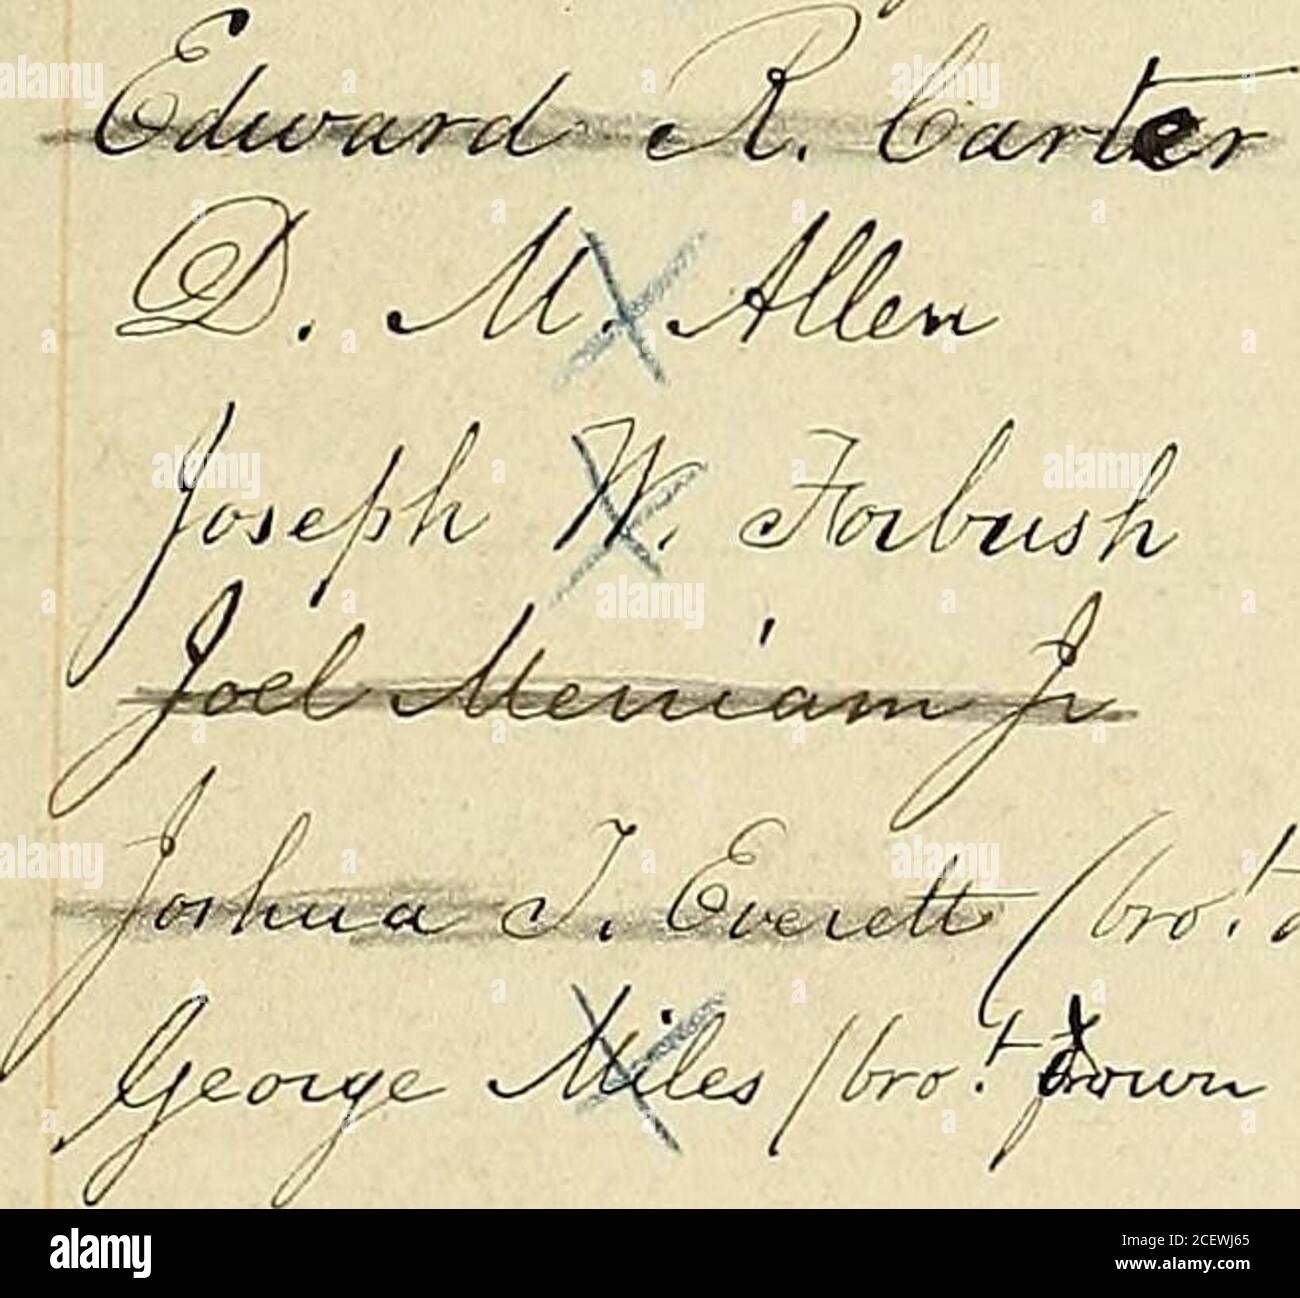 Edward R. Carter
D. M. Allen
Joseph W. Forbush
Joel Merriam Jr
Joshua T. Everett (bro.t d
George Miles (bro.t down
alamy
Image ID: 2CEWJ65
www.alamy.com